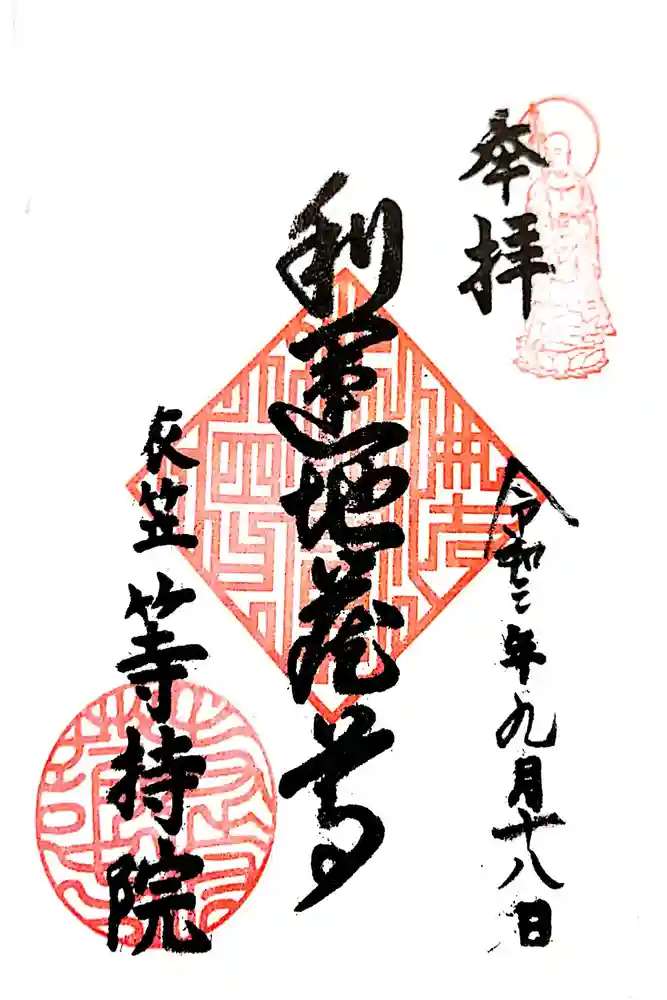 奉拝
令和二年九月十八日
利運地蔵尊
衣笠
等持院